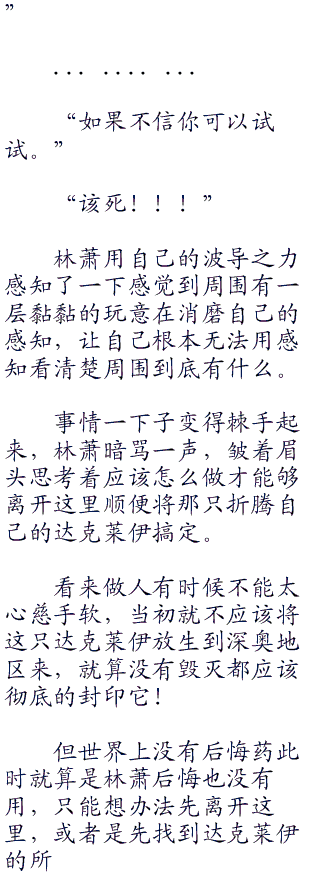 ”
... .... ...
“如果不信你可以试
试。”
“该死！！！”
林萧用自己的波导之力
感知了一下感觉到周围有一
层黏黏的玩意在消磨自己的
感知，让自己根本无法用感
知看清楚周围到底有什么。
事情一下子变得棘手起
来，林萧暗骂一声，皱着眉
头思考着应该怎么做才能够
离开这里顺便将那只折腾自
己的达克莱伊搞定。
看来做人有时候不能太
心慈手软，当初就不应该将
这只达克莱伊放生到深奥地
区来，就算没有毁灭都应该
彻底的封印它！
但世界上没有后悔药此
时就算是林萧后悔也没有
用，只能想办法先离开这
里，或者是先找到达克莱伊
的所